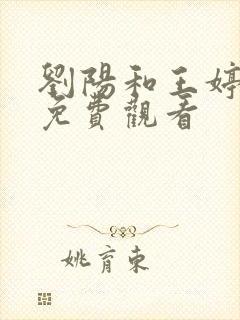 劉陽和王婷
免費觀看
姚育東